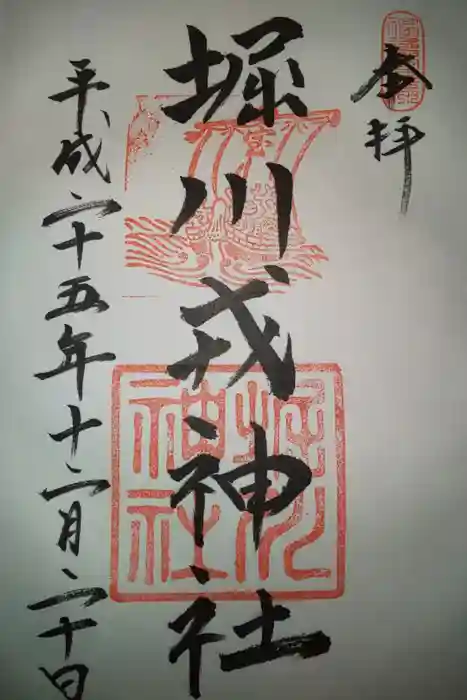 奉拝
堀川戎神社
平成二十五年十二月二十日
堀川
神社